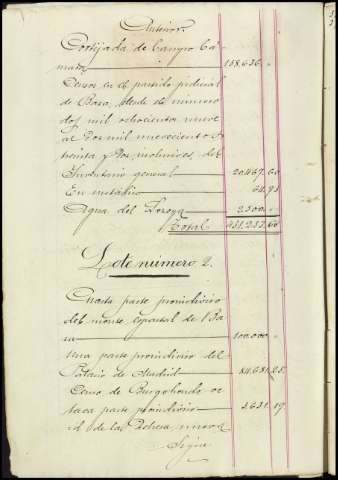 Anterior
Cortijada de Campo Cá-
mara 168.636 "
Censos en el partido judicial
de Baza, desde el número
dos mil ochocientos nueve
al dos mil novecientos
treinta y dos inclusives, del
Inventario general 20.467. 60
En metálico 64. 93
Agua del Lozoya 2.500. "
Total 431.253. 60
Lote número 2.
Cuarta parte proindiviso
del monte espartal de Ba-
za 100.000 "
Una parte proindiviso del
Palacio de Madrid 84.681. 25.
Censo de Burgohondo oc-
tava parte proindiviso 3.631. 19.
id. de las Dehesa nueva
Sigue